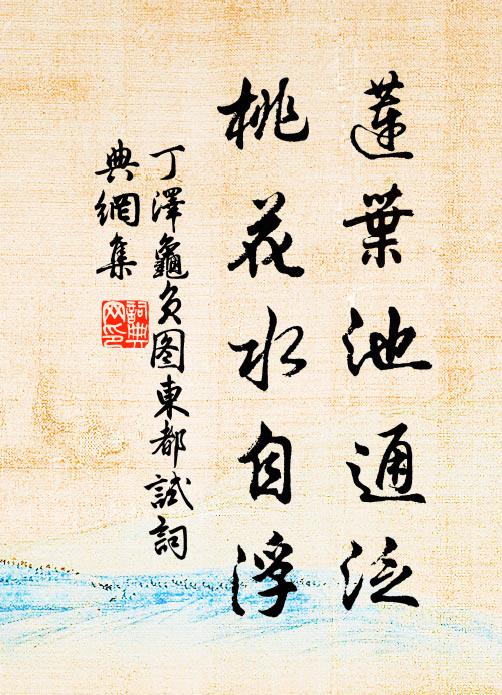 蓮葉池通泛
桃花水自浮
丁澤龜負图東都試詞
典網集
詞典网印